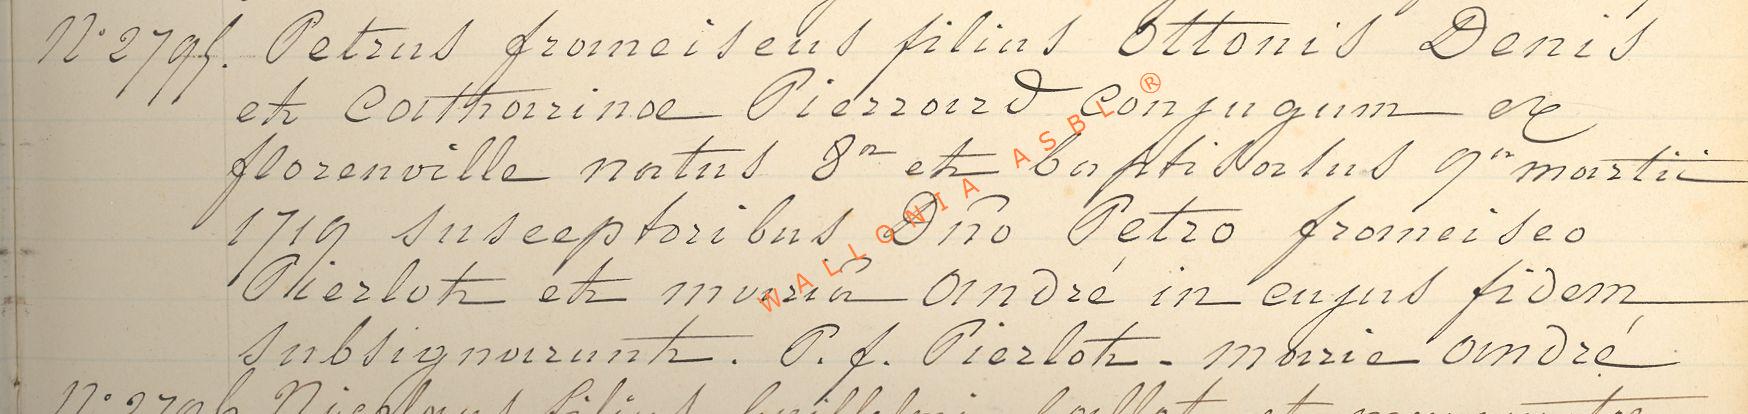 N° 2795. Petrus franciscus filius Ottonis Denis
et Catharinæ Pierrard conjugum ex
florenville natus 8a et baptisatus 9a martii
1719 susceptoribus Dño Petro francisco
Pierlot et mariâ André in cujus fidem
subsignarunt. P. f. Pierlot - marie André
N° 2796 Nicolaus filius
WALLONIA ASBL ®